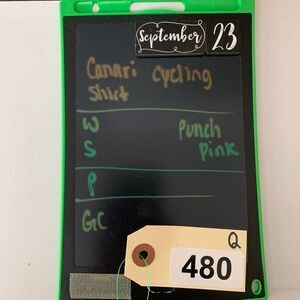 September 23
Canari Cycling
Shirt
W Punch
S Pink
P
GC
Q
480